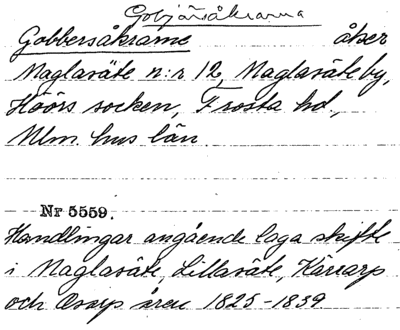 Gobjärsåkrarna
Gobbersåkrarne åker
Maglasäte n:r 12, Maglasäte by,
Höörs socken, Frosta hd.,
Mlm. hus län.
Nr 5559.
Handlingar angående laga skifte
i Maglasäte, Lillasäte, Kärrarp
och åren 1825-1839